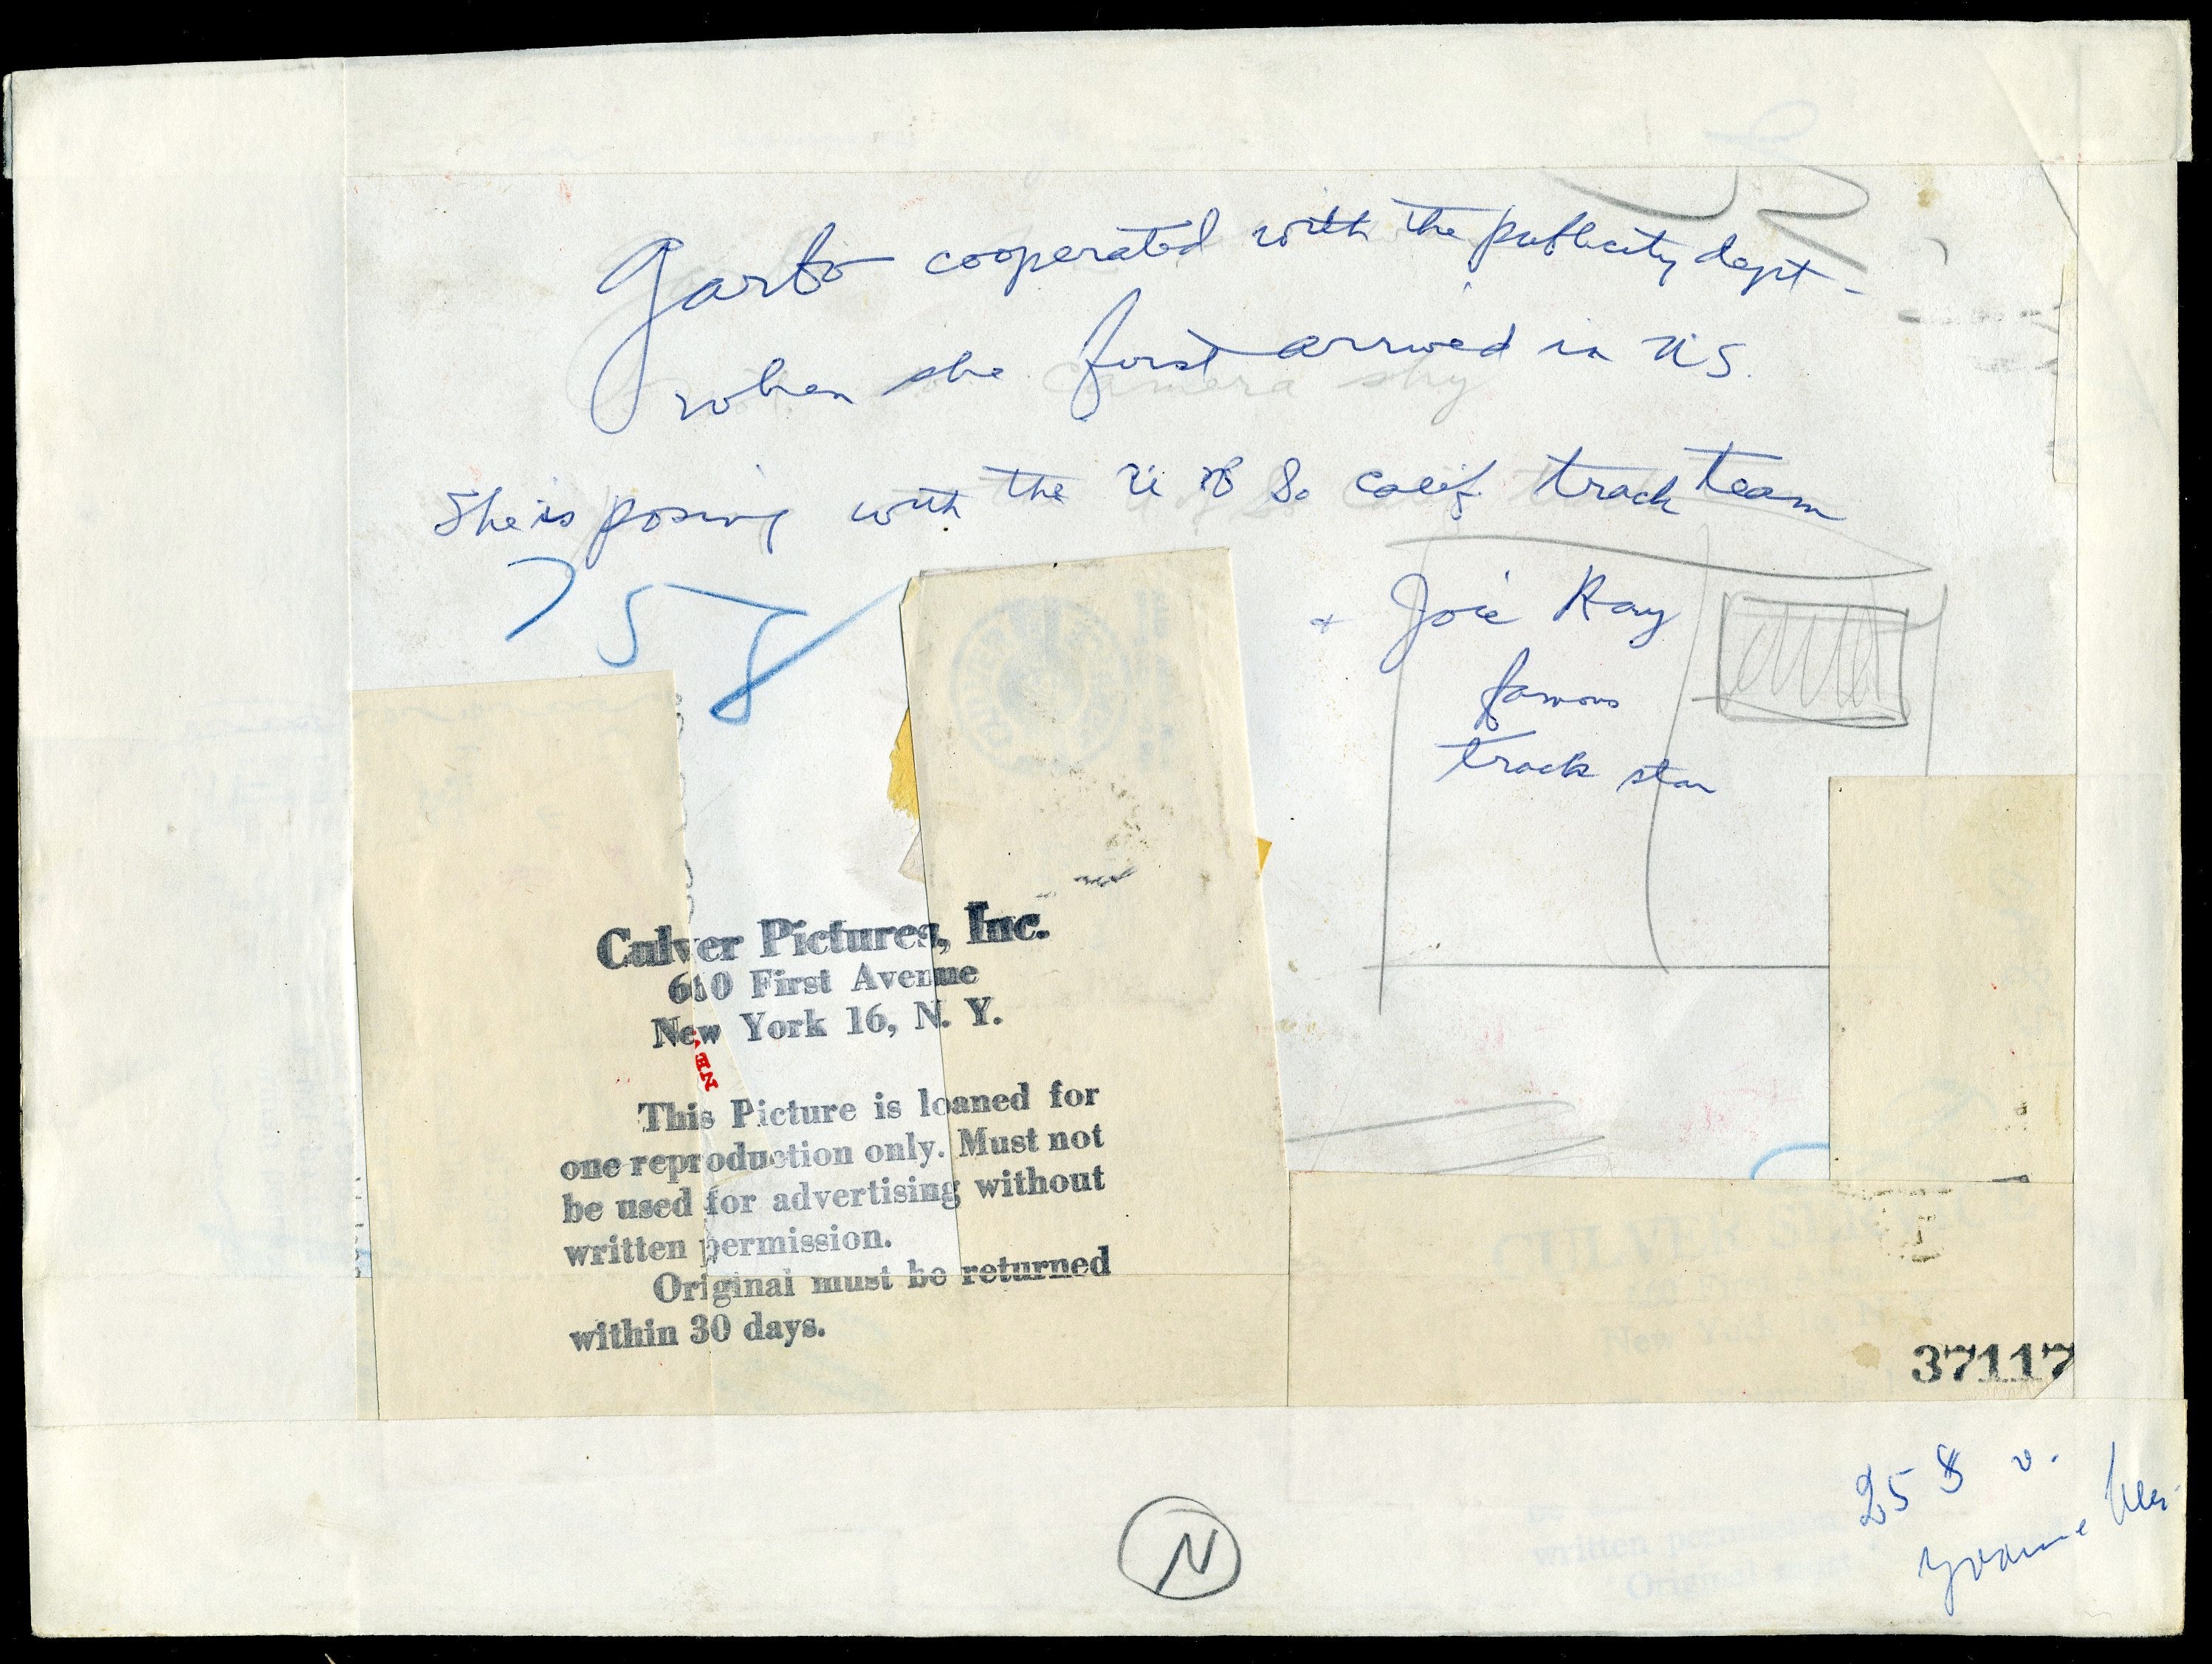 Garbo cooperated with the publicity dept -
when she first arrived in U S.
camera shy
She is posing with the U of So Calif. track team
+ Joie Ray
famous
track star
758
Culver Pictures, Inc.
660 First Avenue
New York 16, N. Y.
This Picture is loaned for
one reproduction only. Must not
be used for advertising without
written permission.
Original must be returned
within 30 days.
37117
258 v.
Yvonne
N
written
Original must